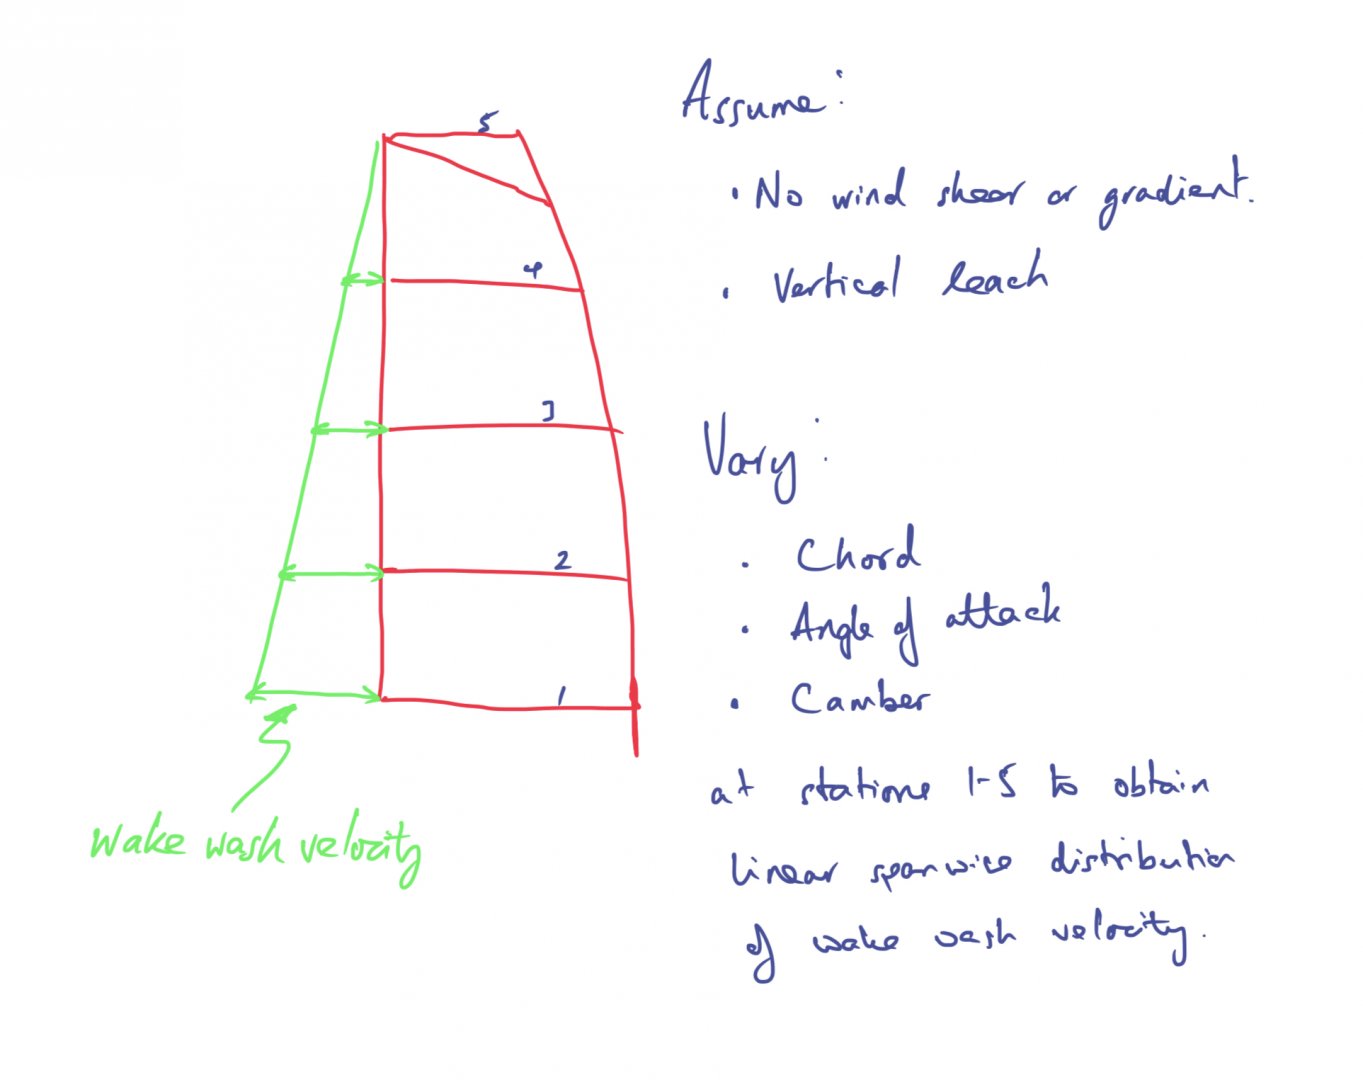 Assume:
5
• No wind shear or gradient.
4
• Vertical leach
3
Vary:
2
• Chord
• Angle of attack
1
• Camber
at stations 1-5 to obtain
Wake wash velocity
linear spanwise distribution
of wake wash velocity.